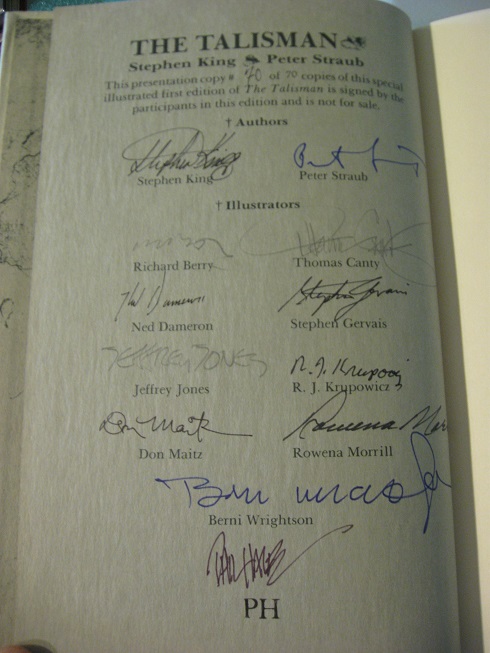 THE TALISMAN
Stephen King Peter Straub
This presentation copy # 70 of 70 copies of this special
illustrated first edition of The Talisman is signed by the
participants in this edition and is not for sale.
† Authors
Stephen King
Stephen King Peter Straub
† Illustrators
Richard Berry Thomas Canty
Ned Dameron Stephen Gervais
Ned Dameron Stephen Gervais
JEFFREY JONES R. J. Krupowicz
Jeffrey Jones R. J. Krupowicz
Don Maitz Rowena Mor
Don Maitz Rowena Morrill
Berni Wrightson
PH